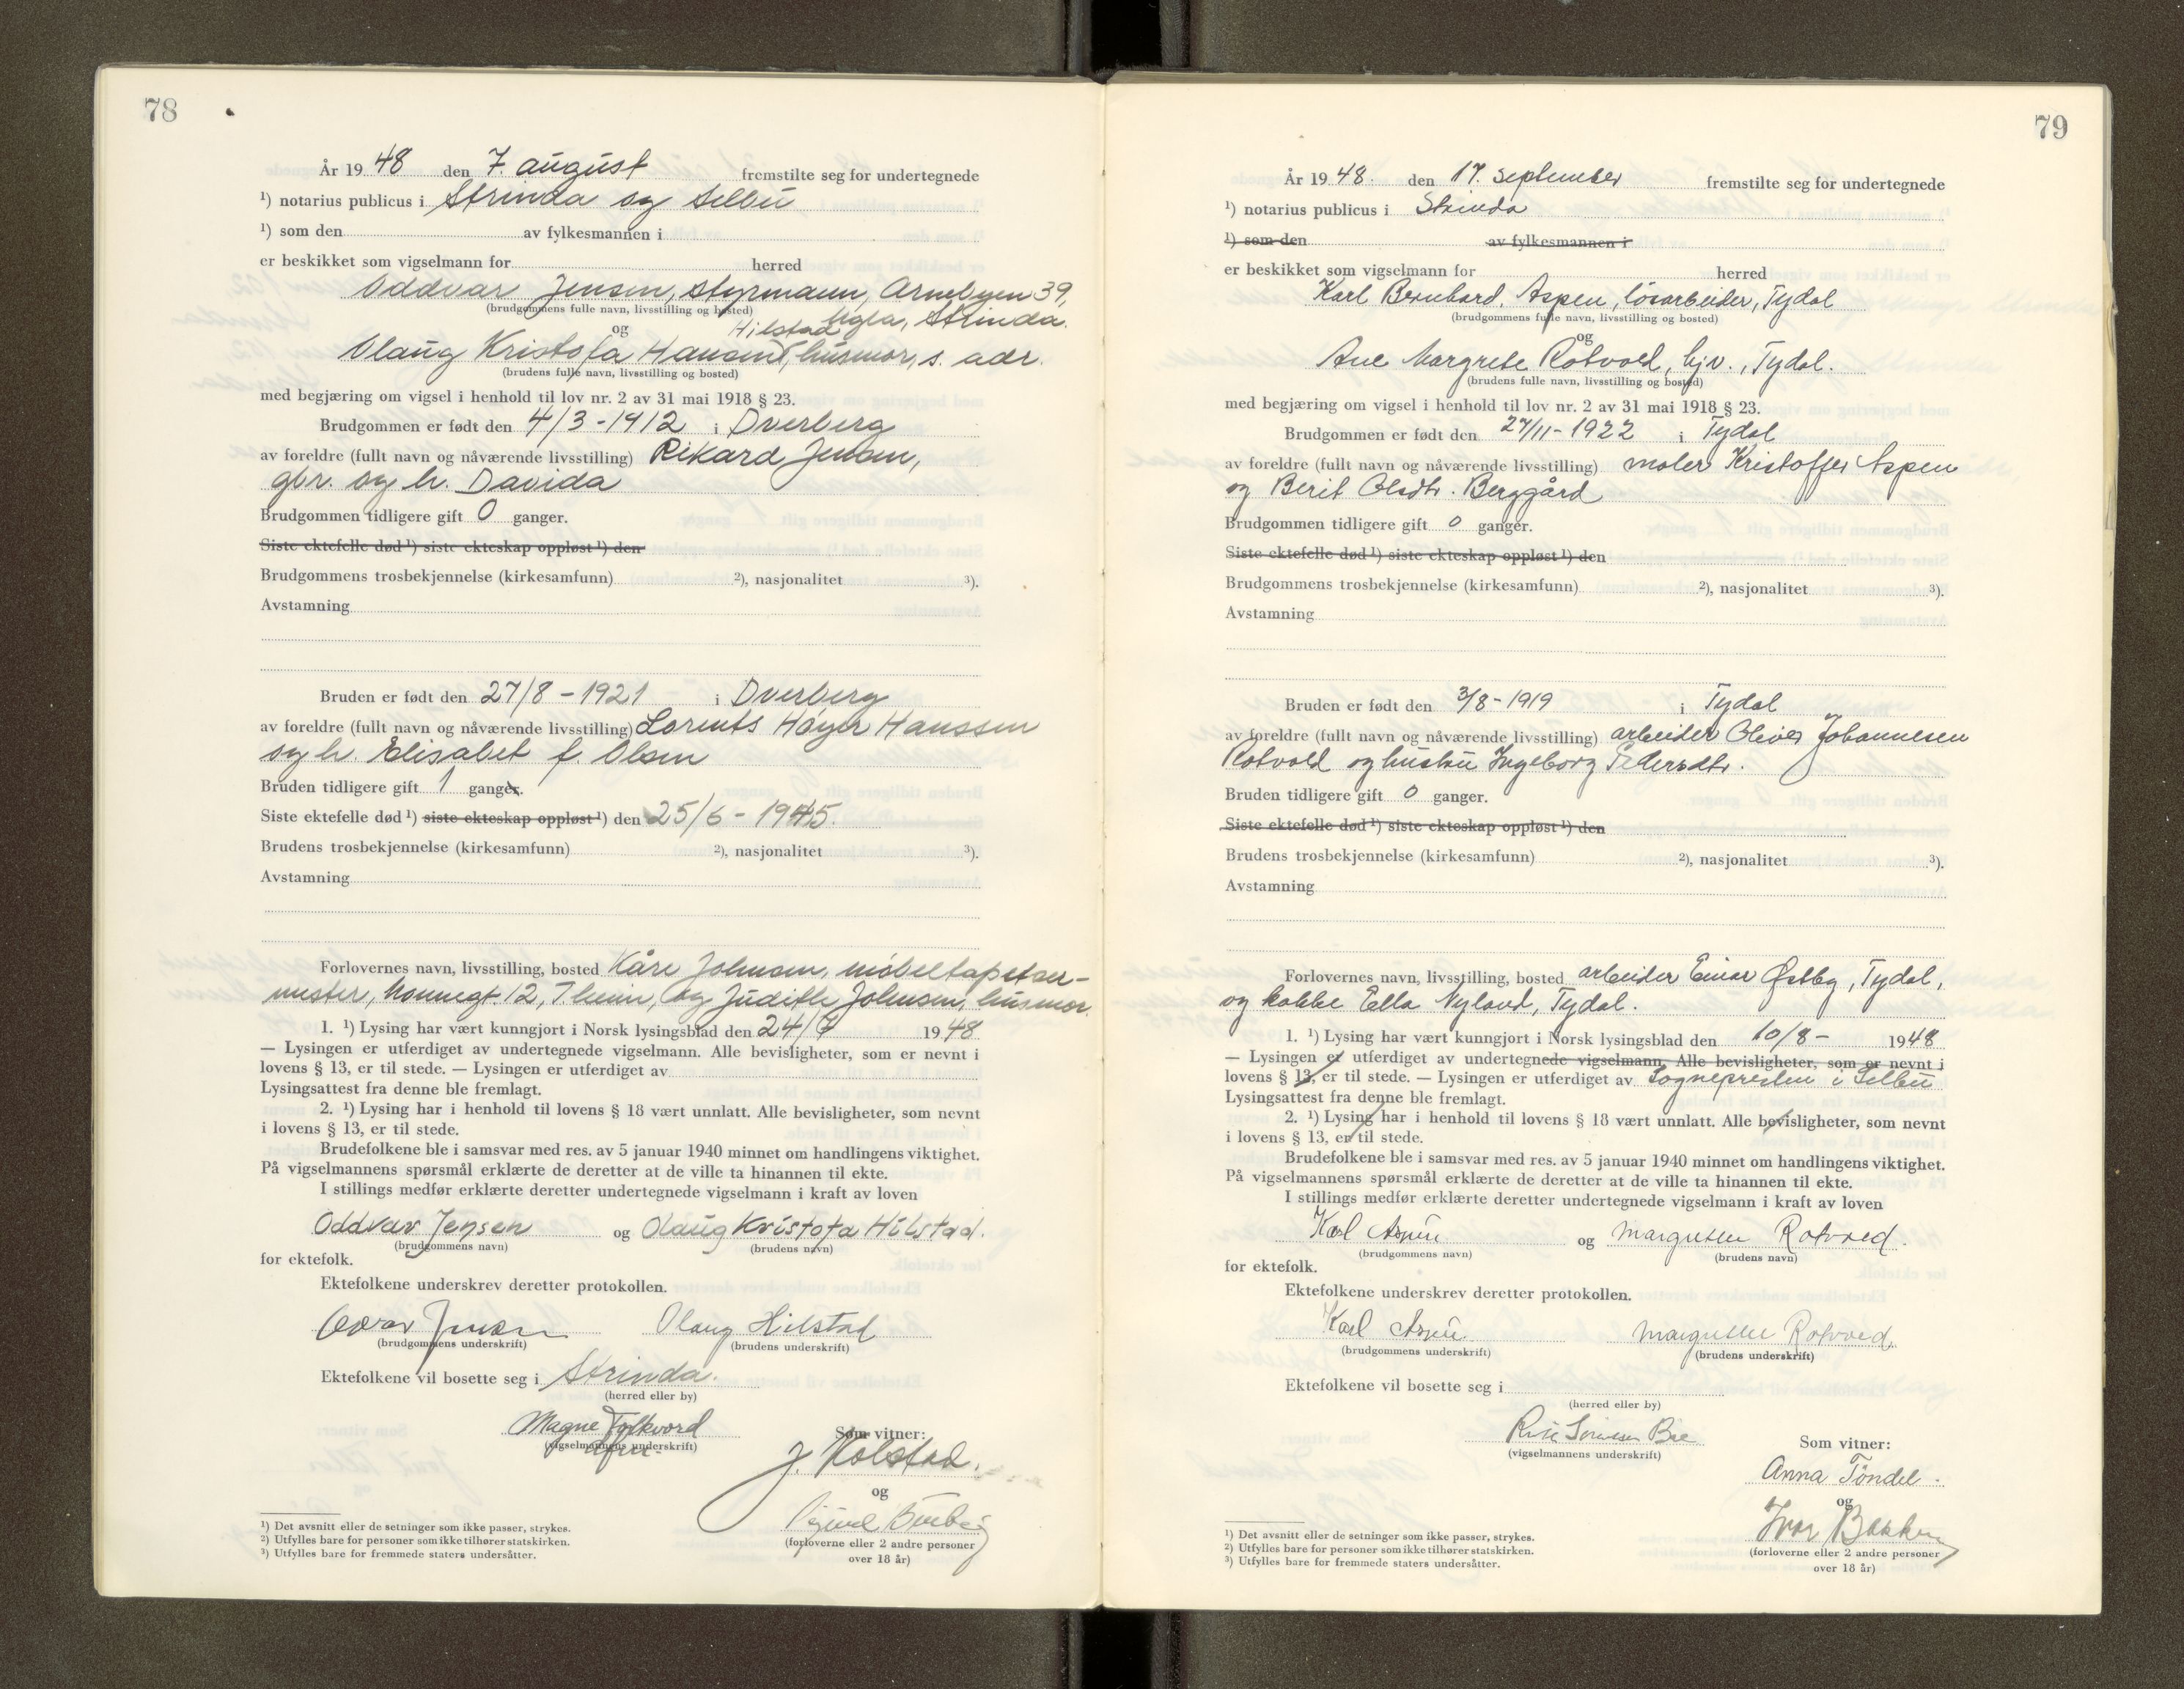 78
År 19 48 den 7. august fremstilte seg for undertegnede
¹) notarius publicus i Strinda og Selbu
¹) som den av fylkesmannen i
er beskikket som vigselmann for herred
Oddvar Jensen, styrmann, Arnebyen 39,
(brudgommens fulle navn, livsstilling og bosted)
Ugla, Strinda.
og Hilstad
Olaug Kristofa Hansen, husmor, s. adr.
(brudens fulle navn, livsstilling og bosted)
med begjæring om vigsel i henhold til lov nr. 2 av 31 mai 1918 § 23.
Brudgommen er født den 4/3-1912 i Dverberg
av foreldre (fullt navn og nåværende livsstilling) Rikard Jensen,
gbr. og h. Davida
Brudgommen tidligere gift 0 ganger.
Siste ektefelle død ¹) siste ekteskap oppløst ¹) den
Brudgommens trosbekjennelse (kirkesamfunn) ²), nasjonalitet ³).
Avstamning
Bruden er født den 27/8-1921 i Dverberg
av foreldre (fullt navn og nåværende livsstilling) Lorents Høyer Hanssen
og h. Elisabet f. Olsen
Bruden tidligere gift 1 ganger.
Siste ektefelle død ¹) siste ekteskap oppløst ¹) den 25/6-1945.
Brudens trosbekjennelse (kirkesamfunn) ²), nasjonalitet ³).
Avstamning
Forlovernes navn, livsstilling, bosted Kåre Johnsen, møbeltapetser-
mester, Nonnegt. 12, Theim, og Judith Johnsen, husmor.
1. ¹) Lysing har vært kunngjort i Norsk lysingsblad den 24/7 19 48
— Lysingen er utferdiget av undertegnede vigselmann. Alle bevisligheter, som er nevnt i
lovens § 13, er til stede. — Lysingen er utferdiget av
Lysingsattest fra denne ble fremlagt.
2. ¹) Lysing har i henhold til lovens § 18 vært unnlatt. Alle bevisligheter, som nevnt
i lovens § 13, er til stede.
Brudefolkene ble i samsvar med res. av 5 januar 1940 minnet om handlingens viktighet.
På vigselmannens spørsmål erklærte de deretter at de ville ta hinannen til ekte.
I stillings medfør erklærte deretter undertegnede vigselmann i kraft av loven
Oddvar Jensen og Olaug Kristofa Hilstad.
(brudgommens navn) (brudens navn)
for ektefolk.
Ektefolkene underskrev deretter protokollen.
Oddvar Jensen Olaug Hilstad
(brudgommens underskrift) (brudens underskrift)
Ektefolkene vil bosette seg i Strinda.
(herred eller by)
Magne Folkvord
(vigselmannens underskrift)
Som vitner:
J. Holstad.
og
(forloverne eller 2 andre personer
over 18 år)
¹) Det avsnitt eller de setninger som ikke passer, strykes.
²) Utfylles bare for personer som ikke tilhører statskirken.
³) Utfylles bare for fremmede staters undersåtter.
79
År 19 48. den 17. september fremstilte seg for undertegnede
¹) notarius publicus i Strinda
¹) som den av fylkesmannen i
er beskikket som vigselmann for herred
Karl Bernhard Aspen, løsarbeider, Tydal
(brudgommens fulle navn, livsstilling og bosted)
og
Ane Margrete Rotvold, hjv., Tydal.
(brudens fulle navn, livsstilling og bosted)
med begjæring om vigsel i henhold til lov nr. 2 av 31 mai 1918 § 23.
Brudgommen er født den 27/11-1922 i Tydal
av foreldre (fullt navn og nåværende livsstilling) maler Kristoffer Aspen
og Berit Olsdtr. Berggård
Brudgommen tidligere gift 0 ganger.
Siste ektefelle død ¹) siste ekteskap oppløst ¹) den
Brudgommens trosbekjennelse (kirkesamfunn) ²), nasjonalitet ³).
Avstamning
Bruden er født den 3/8-1919 i Tydal
av foreldre (fullt navn og nåværende livsstilling) arbeider Oliver Johannesen
Rotvold og hustru Ingeborg Pedersdtr.
Bruden tidligere gift 0 ganger.
Siste ektefelle død ¹) siste ekteskap oppløst ¹) den
Brudens trosbekjennelse (kirkesamfunn) ²), nasjonalitet ³).
Avstamning
Forlovernes navn, livsstilling, bosted arbeider Einar Østby, Tydal,
og kokke Ella Nyland, Tydal.
1. ¹) Lysing har vært kunngjort i Norsk lysingsblad den 10/8- 1948
— Lysingen er utferdiget av undertegnede vigselmann. Alle bevisligheter, som er nevnt i
lovens § 13, er til stede. — Lysingen er utferdiget av Sognepresten i Selbu
Lysingsattest fra denne ble fremlagt.
2. ¹) Lysing har i henhold til lovens § 18 vært unnlatt. Alle bevisligheter, som nevnt
i lovens § 13, er til stede.
Brudefolkene ble i samsvar med res. av 5 januar 1940 minnet om handlingens viktighet.
På vigselmannens spørsmål erklærte de deretter at de ville ta hinannen til ekte.
I stillings medfør erklærte deretter undertegnede vigselmann i kraft av loven
Karl Aspen og Margrethe Rotvold.
(brudgommens navn) (brudens navn)
for ektefolk.
Ektefolkene underskrev deretter protokollen.
Karl Aspen Margrethe Rotvold.
(brudgommens underskrift) (brudens underskrift)
Ektefolkene vil bosette seg i
(herred eller by)
(vigselmannens underskrift)
Som vitner:
Anna Tøndel.
og
Ivar Bakken
(forloverne eller 2 andre personer
over 18 år)
¹) Det avsnitt eller de setninger som ikke passer, strykes.
²) Utfylles bare for personer som ikke tilhører statskirken.
³) Utfylles bare for fremmede staters undersåtter.